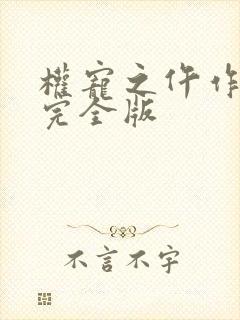 權寵之仵作
完全版
不言不字